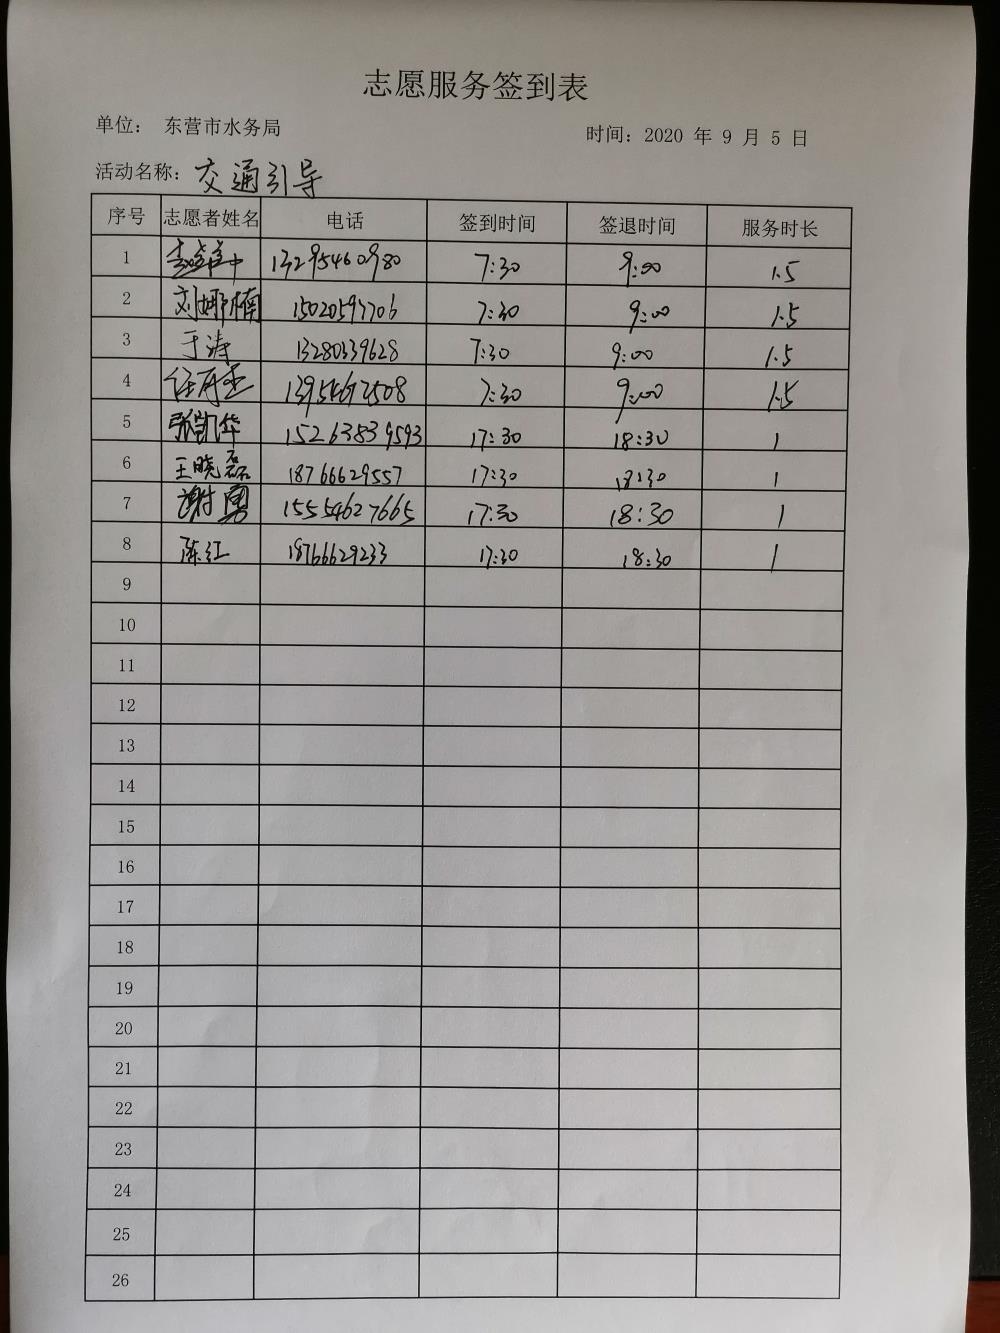 志愿服务签到表
单位： 东营市水务局
时间：2020 年 9 月 5 日
活动名称：交通引导
序号 志愿者姓名 电话 签到时间 签退时间 服务时长
1 13295460980 7:30 9:00 1.5
2 刘娜楠 15020597706 7:30 9:00 1.5
3 于涛 13280339628 7:30 9:00 1.5
4 13954672508 7:30 9:00 1.5
5 张凯华 15263839593 17:30 18:30 1
6 王晓磊 18766629557 17:30 18:30 1
7 谢勇 15554627665 17:30 18:30 1
8 陈江 18766629233 17:30 18:30 1
9
10
11
12
13
14
15
16
17
18
19
20
21
22
23
24
25
26